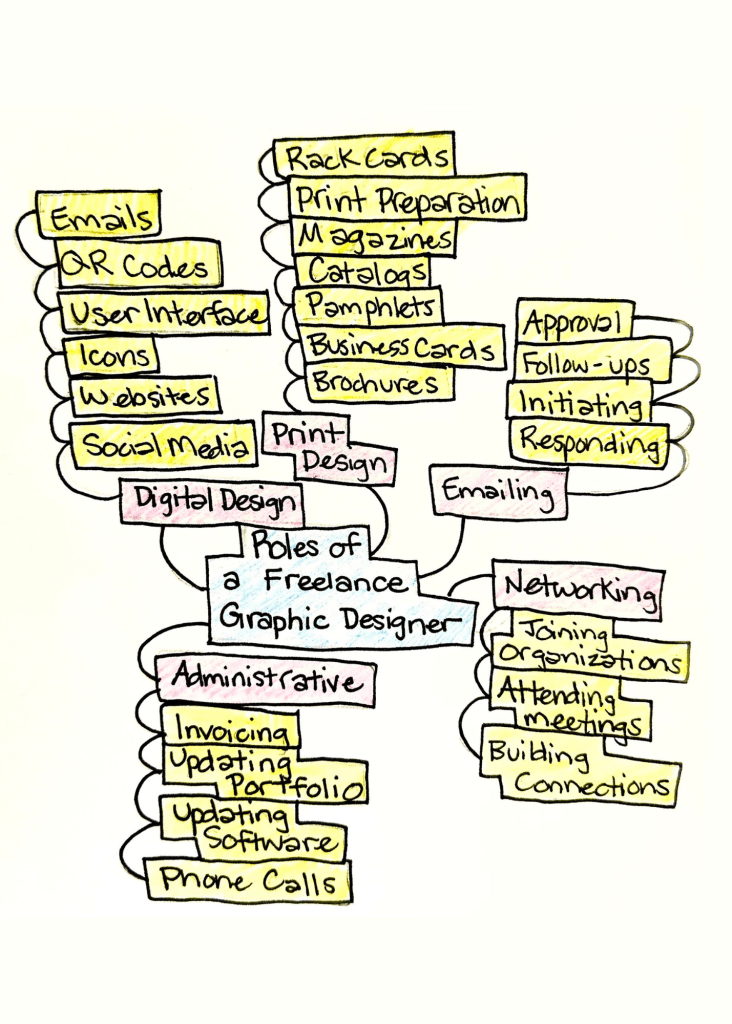 Rack Cards
Print Preparation
Magazines
Catalogs
Pamphlets
Business Cards
Brochures
Print
Design
Emails
QR Codes
User Interface
Icons
Websites
Social Media
Digital Design
Approval
Follow-ups
Initiating
Responding
Emailing
Roles of
a Freelance
Graphic Designer
Networking
Joining
Organizations
Attending
meetings
Building
Connections
Administrative
Invoicing
Updating
Portfolio
Updating
Software
Phone Calls